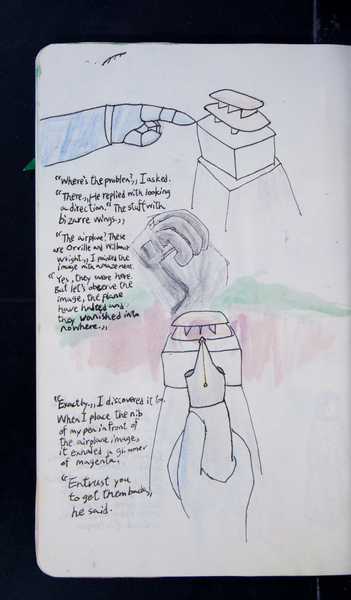 "Where's the problem?,, I asked.
"There.,, He replied with looking
a direction. "The stuff with
bizarre wings.,,
"The airplane? These
are Orville and Wilbur
Wright.,, I pointed the
image with amazement.
"Yes, they were here.
But let's observe the
image, the plane
have halted and
they vanished into
nowhere.,,
"Exactly.,, I discovered it
When I place the nib
of my pen in front of
the airplane image,
it exuded a glimmer
of magenta.
"Entrust you
to get them back,,
he said.